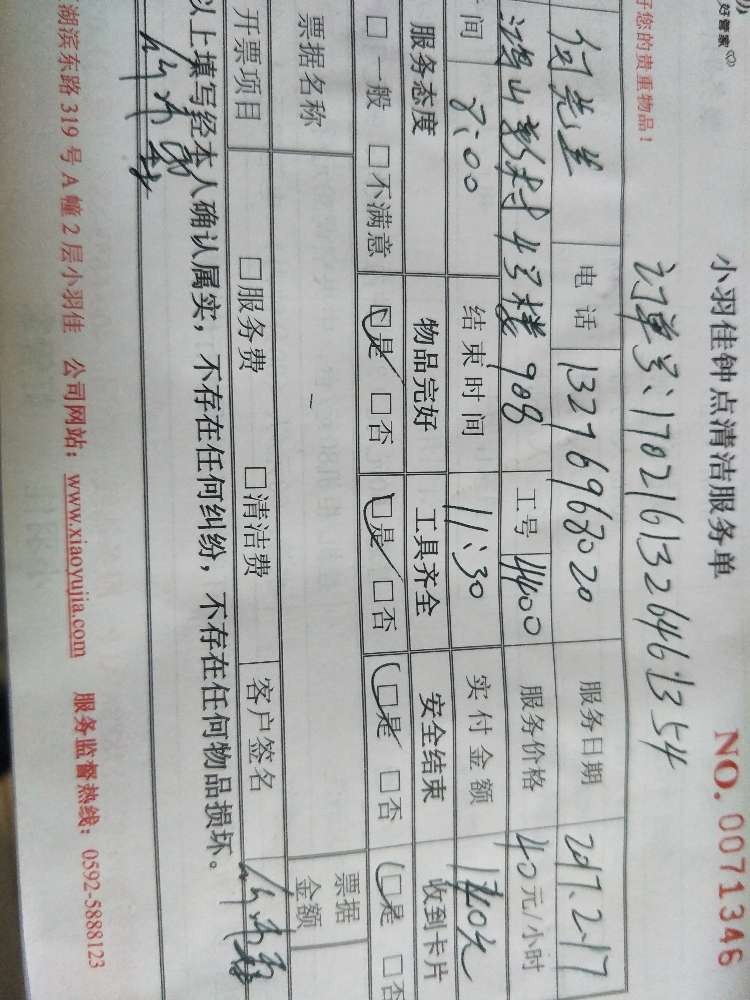 好管家
好您的贵重物品！
小羽佳钟点清洁服务单
NO. 0071346
订单号：1702161326469354
何先生 电话 13276968020 服务日期 2017.2.17
鸿山新村4号楼908 工号 4400 服务价格 40元/小时
时间 8:00 结束时间 11:30 实付金额 140元
服务态度 物品完好 工具齐全 安全结束 收到卡片
□一般 □不满意 □是 □否 □是 □否 □是 □否 □是 □否
票据名称 票据金额
开票项目 □服务费 □清洁费 客户签名
以上填写经本人确认属实，不存在任何纠纷，不存在任何物品损坏。
湖滨东路319号A幢2层小羽佳 公司网站：www.xiaoyujia.com 服务监督热线：0592-5888123